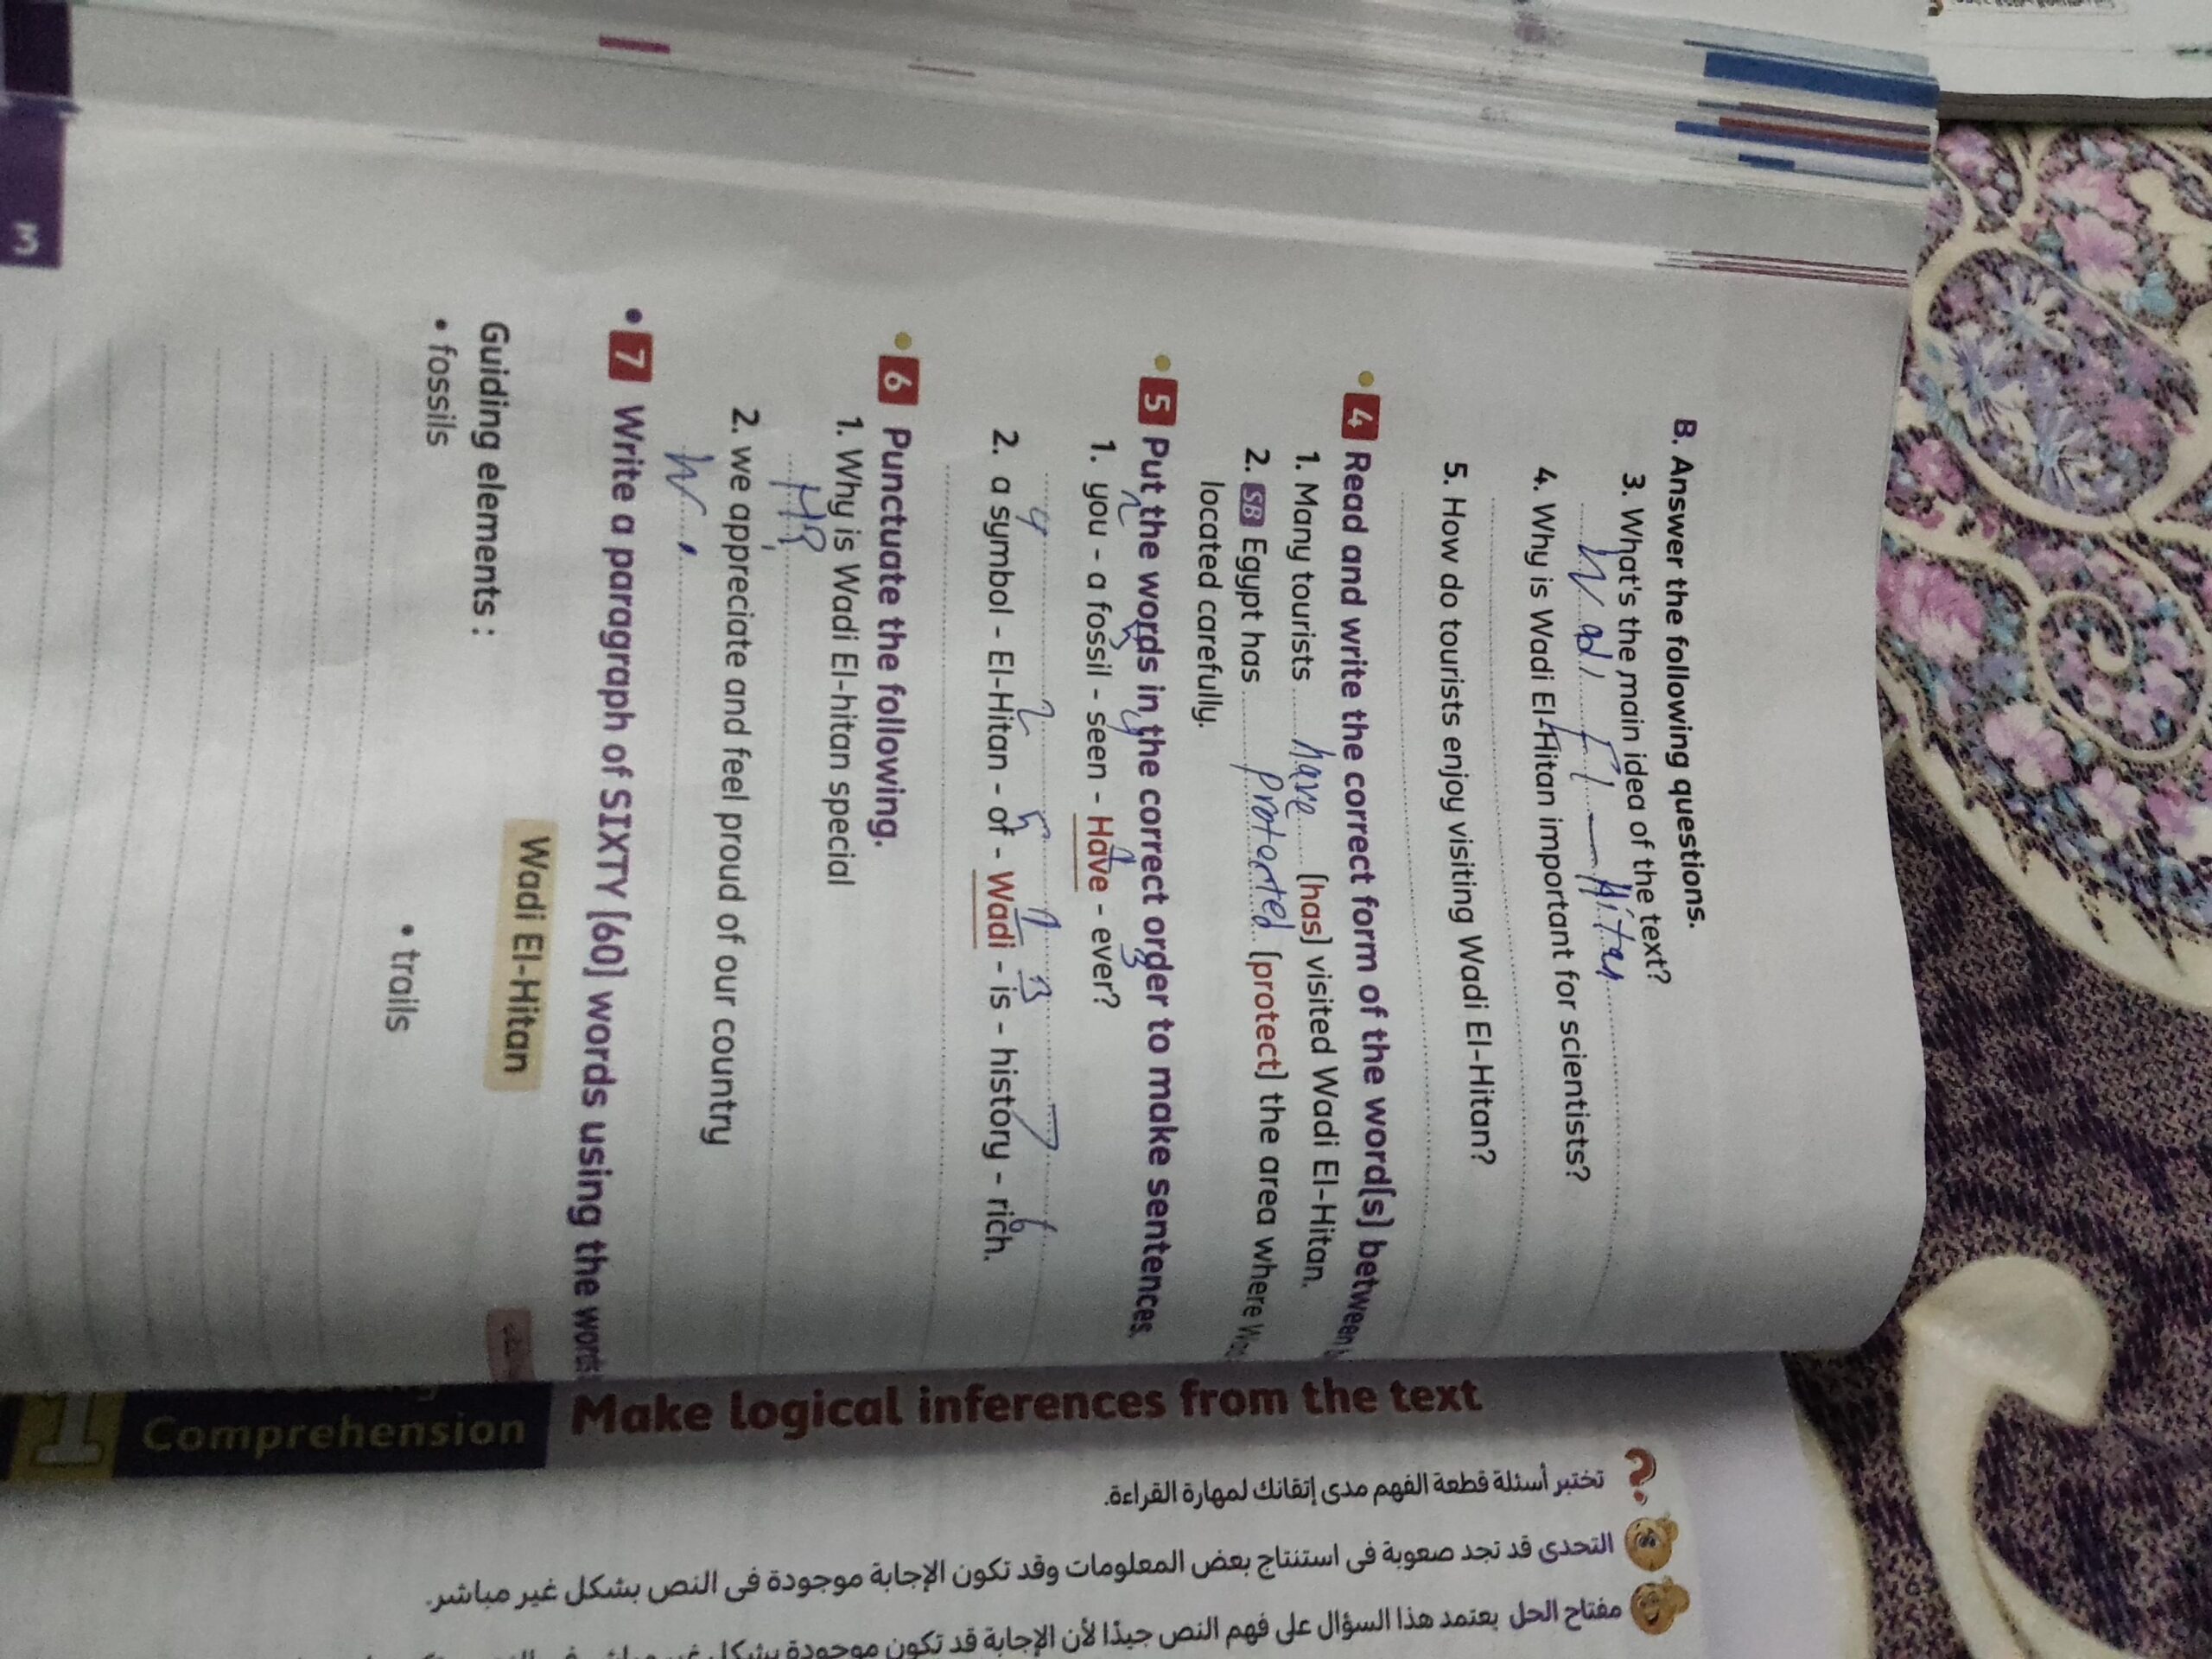 B. Answer the following questions.
3. What's the main idea of the text?
Wadi El-Hitan
4. Why is Wadi El-Hitan important for scientists?
5. How do tourists enjoy visiting Wadi El-Hitan?
4 Read and write the correct form of the word(s) between
1. Many tourists have (has) visited Wadi El-Hitan.
2. SB Egypt has protected (protect) the area where
located carefully.
5 Put the words in the correct order to make sentences.
2 5 4 1 3
1. you - a fossil - seen - Have - ever?
4 2 5 1 3 7 6
2. a symbol - El-Hitan - of - Wadi - is - history - rich.
6 Punctuate the following.
1. Why is Wadi El-hitan special
H?
2. we appreciate and feel proud of our country
W .
7 Write a paragraph of SIXTY (60) words using the words
Wadi El-Hitan
Guiding elements :
• fossils
• trails
3
1
Comprehension
Make logical inferences from the text
تختبر أسئلة قطعة الفهم مدى إتقانك لمهارة القراءة.
التحدى قد تجد صعوبة فى استنتاج بعض المعلومات وقد تكون الإجابة موجودة فى النص بشكل غير مباشر.
مفتاح الحل يعتمد هذا السؤال على فهم النص جيدًا لأن الإجابة قد تكون موجودة بشكل غير